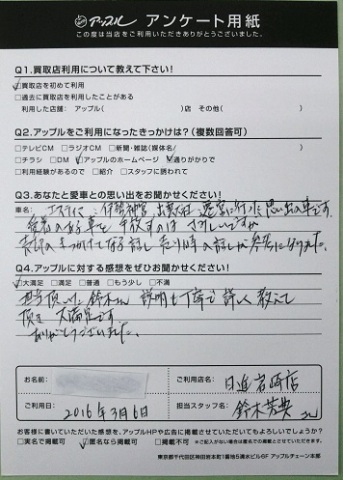 アップル アンケート用紙
この度は当店をご利用いただきありがとうございました。
Q1.買取店利用について教えて下さい!
☑買取店を初めて利用
□過去に買取店を利用したことがある
利用した店舗: アップル( )店 その他( )
Q2.アップルをご利用になったきっかけは?(複数回答可)
□テレビCM □ラジオCM □新聞・雑誌(媒体名/ )
□チラシ □DM ☑アップルのホームページ ☑通りがかりで
□利用経験があるので □紹介 □スタッフに誘われて
Q3.あなたと愛車との思い出をお聞かせください!
車名:エスティマ:伊勢神宮、出雲大社
思い出の車です。
Q4.アップルに対する感想をぜひお聞かせください!
☑大満足 □満足 □普通 □もう少し □不満
担当頂いた鈴木さん 説明も丁寧で詳しく教えて
頂き 大満足です
ありがとうございました。
お名前:
ご利用店名: 日進岩崎店
ご利用日: 2016年3月6日
担当スタッフ名: 鈴木
お客様に書いていただいた感想を、アップルHPや広告に掲載させていただいてもよろしいでしょうか?
□実名で掲載可 ☑匿名なら掲載可 □掲載不可 ※ご記入がない場合は匿名での掲載とさせていただきます。
東京都千代田区神田岩本町1番地5清水ビル6F アップルチェーン本部